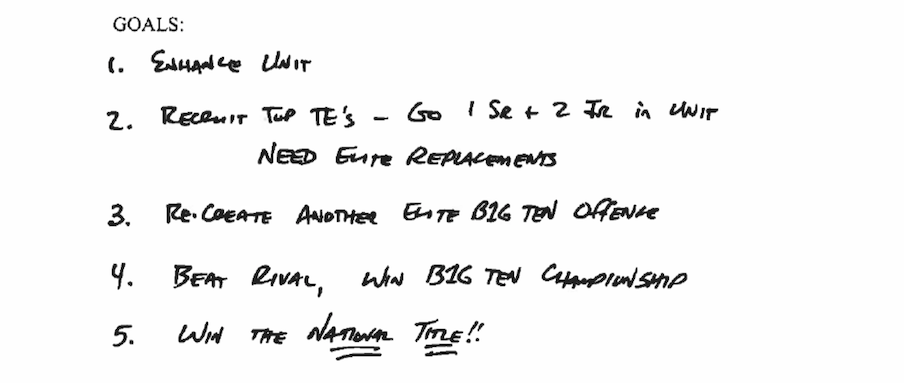 GOALS:
1. ENHANCE UNIT
2. RECRUIT TOP TE'S - GO 1 SR + 2 JR in UNIT
NEED ELITE REPLACEMENTS
3. RE-CREATE ANOTHER ELITE BIG TEN OFFENCE
4. BEAT RIVAL, WIN BIG TEN CHAMPIONSHIP
5. WIN THE NATIONAL TITLE!!